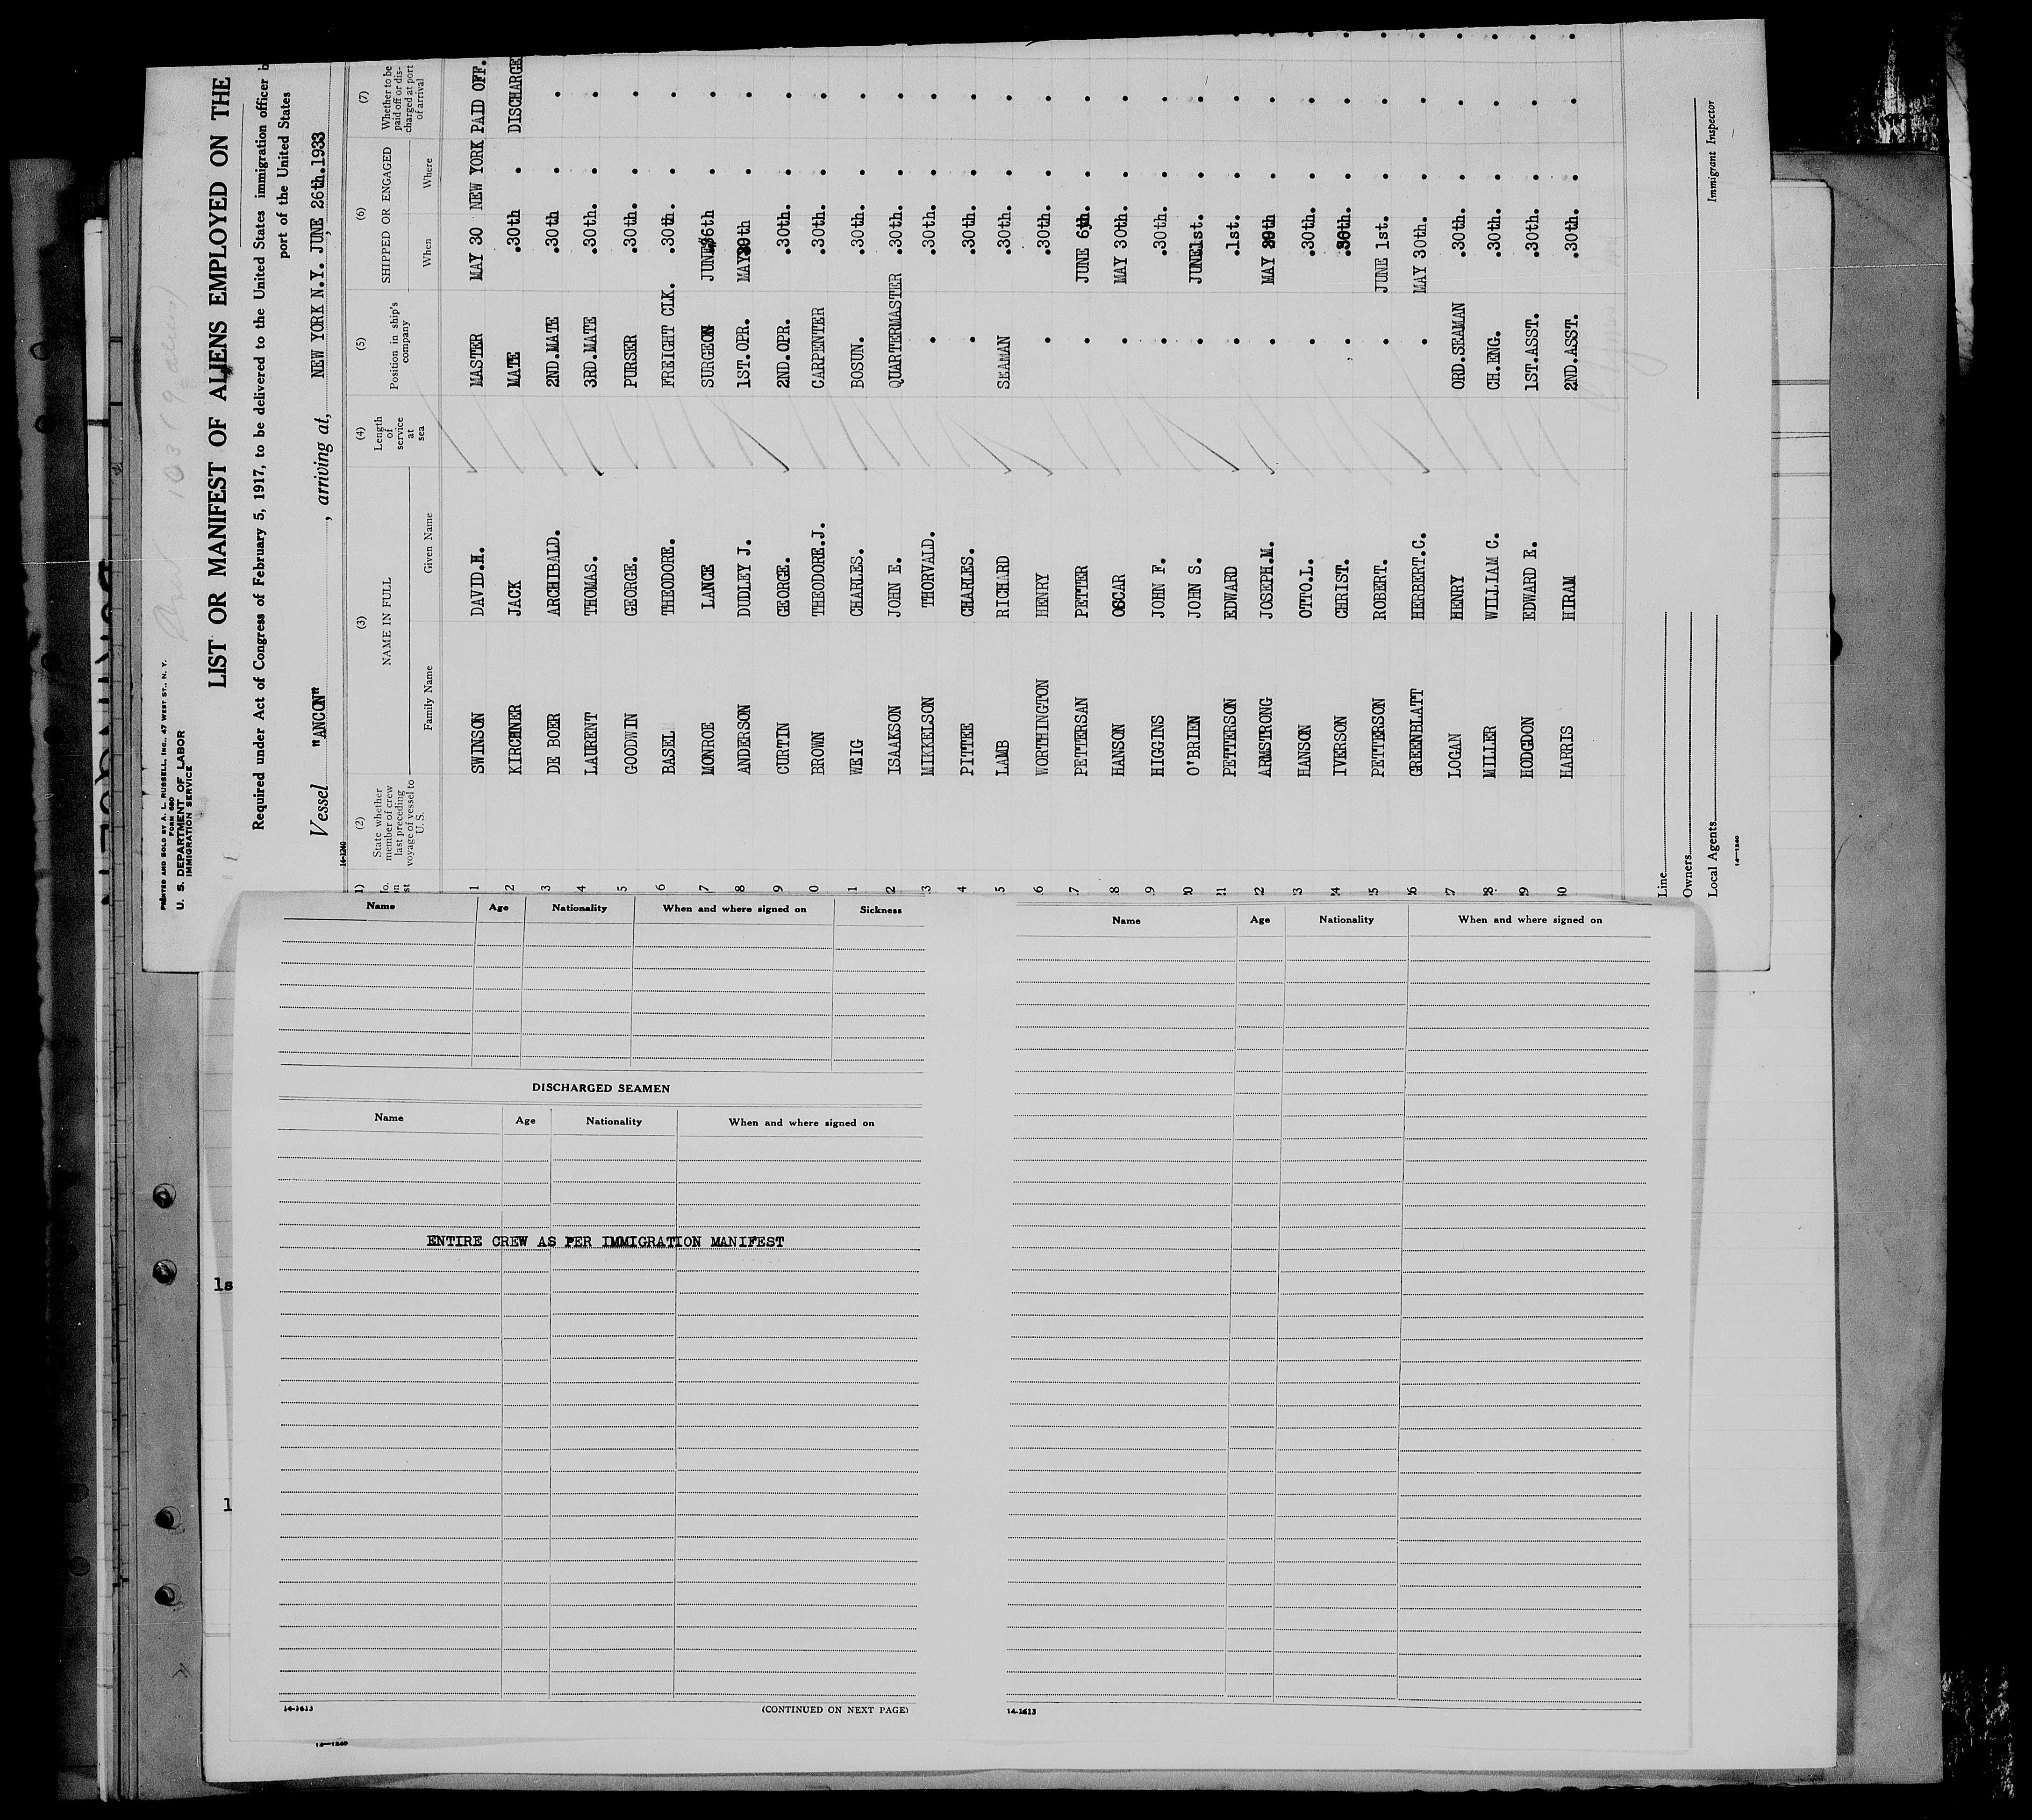 PRINTED AND SOLD BY A. L. RUSSELL, INC., 47 WEST ST., N. Y.
FORM 680
U. S. DEPARTMENT OF LABOR
IMMIGRATION SERVICE
LIST OR MANIFEST OF ALIENS EMPLOYED ON THE
Required under Act of Congress of February 5, 1917, to be delivered to the United States immigration officer
port of the United States
Vessel "ANCON", arriving at, NEW YORK N.Y. JUNE 26th.1933
14-1240
(2) (3) (4) (5) (6) (7)
State whether member of crew last preceding voyage of vessel to U. S. NAME IN FULL Length of service at sea Position in ship's company SHIPPED OR ENGAGED Whether to be paid off or discharged at port of arrival
Family Name Given Name When Where
1 SWINSON DAVID.H. MASTER MAY 30 NEW YORK PAID OFF.
2 KIRCHNER JACK MATE .30th . DISCHARGE
3 DE BOER ARCHIBALD. 2ND.MATE .30th . .
4 LAURENT THOMAS. 3RD.MATE .30th. . .
5 GOODWIN GEORGE. PURSER .30th. . .
6 BASEL THEODORE. FREIGHT CLK. .30th. . .
7 MONROE LANCE SURGEON JUNE 6th . .
8 ANDERSON DUDLEY J. 1ST.OPR. MAY30th . .
9 CURTIN GEORGE. 2ND.OPR. .30th. . .
0 BROWN THEODORE.J. CARPENTER .30th. . .
1 WEIG CHARLES. BOSUN. .30th. . .
2 ISAAKSON JOHN E. QUARTERMASTER .30th. . .
3 MIKKELSON THORVALD. . .30th. . .
4 PITTEE CHARLES. . .30th. . .
5 LAMB RICHARD SEAMAN .30th. . .
6 WORTHINGTON HENRY . .30th. . .
7 PETTERSAN PETTER . JUNE 6th. . .
8 HANSON OSCAR . MAY 30th. . .
9 HIGGINS JOHN F. . .30th. . .
20 O'BRIEN JOHN S. . JUNE1st. . .
21 PETTERSON EDWARD . .1st. . .
22 ARMSTRONG JOSEPH.M. . MAY 30th . .
23 HANSON OTTO.L. . .30th. . .
24 IVERSON CHRIST. . .30th. . .
25 PETTERSON ROBERT. . JUNE 1st. . .
26 GREENBLATT HERBERT.C. . MAY 30th. . .
27 LOGAN HENRY ORD.SEAMAN .30th. . .
28 MILLER WILLIAM C. CH.ENG. .30th. . .
29 HODGDON EDWARD E. 1ST.ASST. .30th. . .
30 HARRIS HIRAM 2ND.ASST. .30th. . .
Line
Owners
Local Agents
Immigrant Inspector
14-1240
Name Age Nationality When and where signed on Sickness
DISCHARGED SEAMEN
Name Age Nationality When and where signed on
ENTIRE CREW AS PER IMMIGRATION MANIFEST
14-1613
(CONTINUED ON NEXT PAGE)
Name Age Nationality When and where signed on
14-1613
14-1240
1s
1